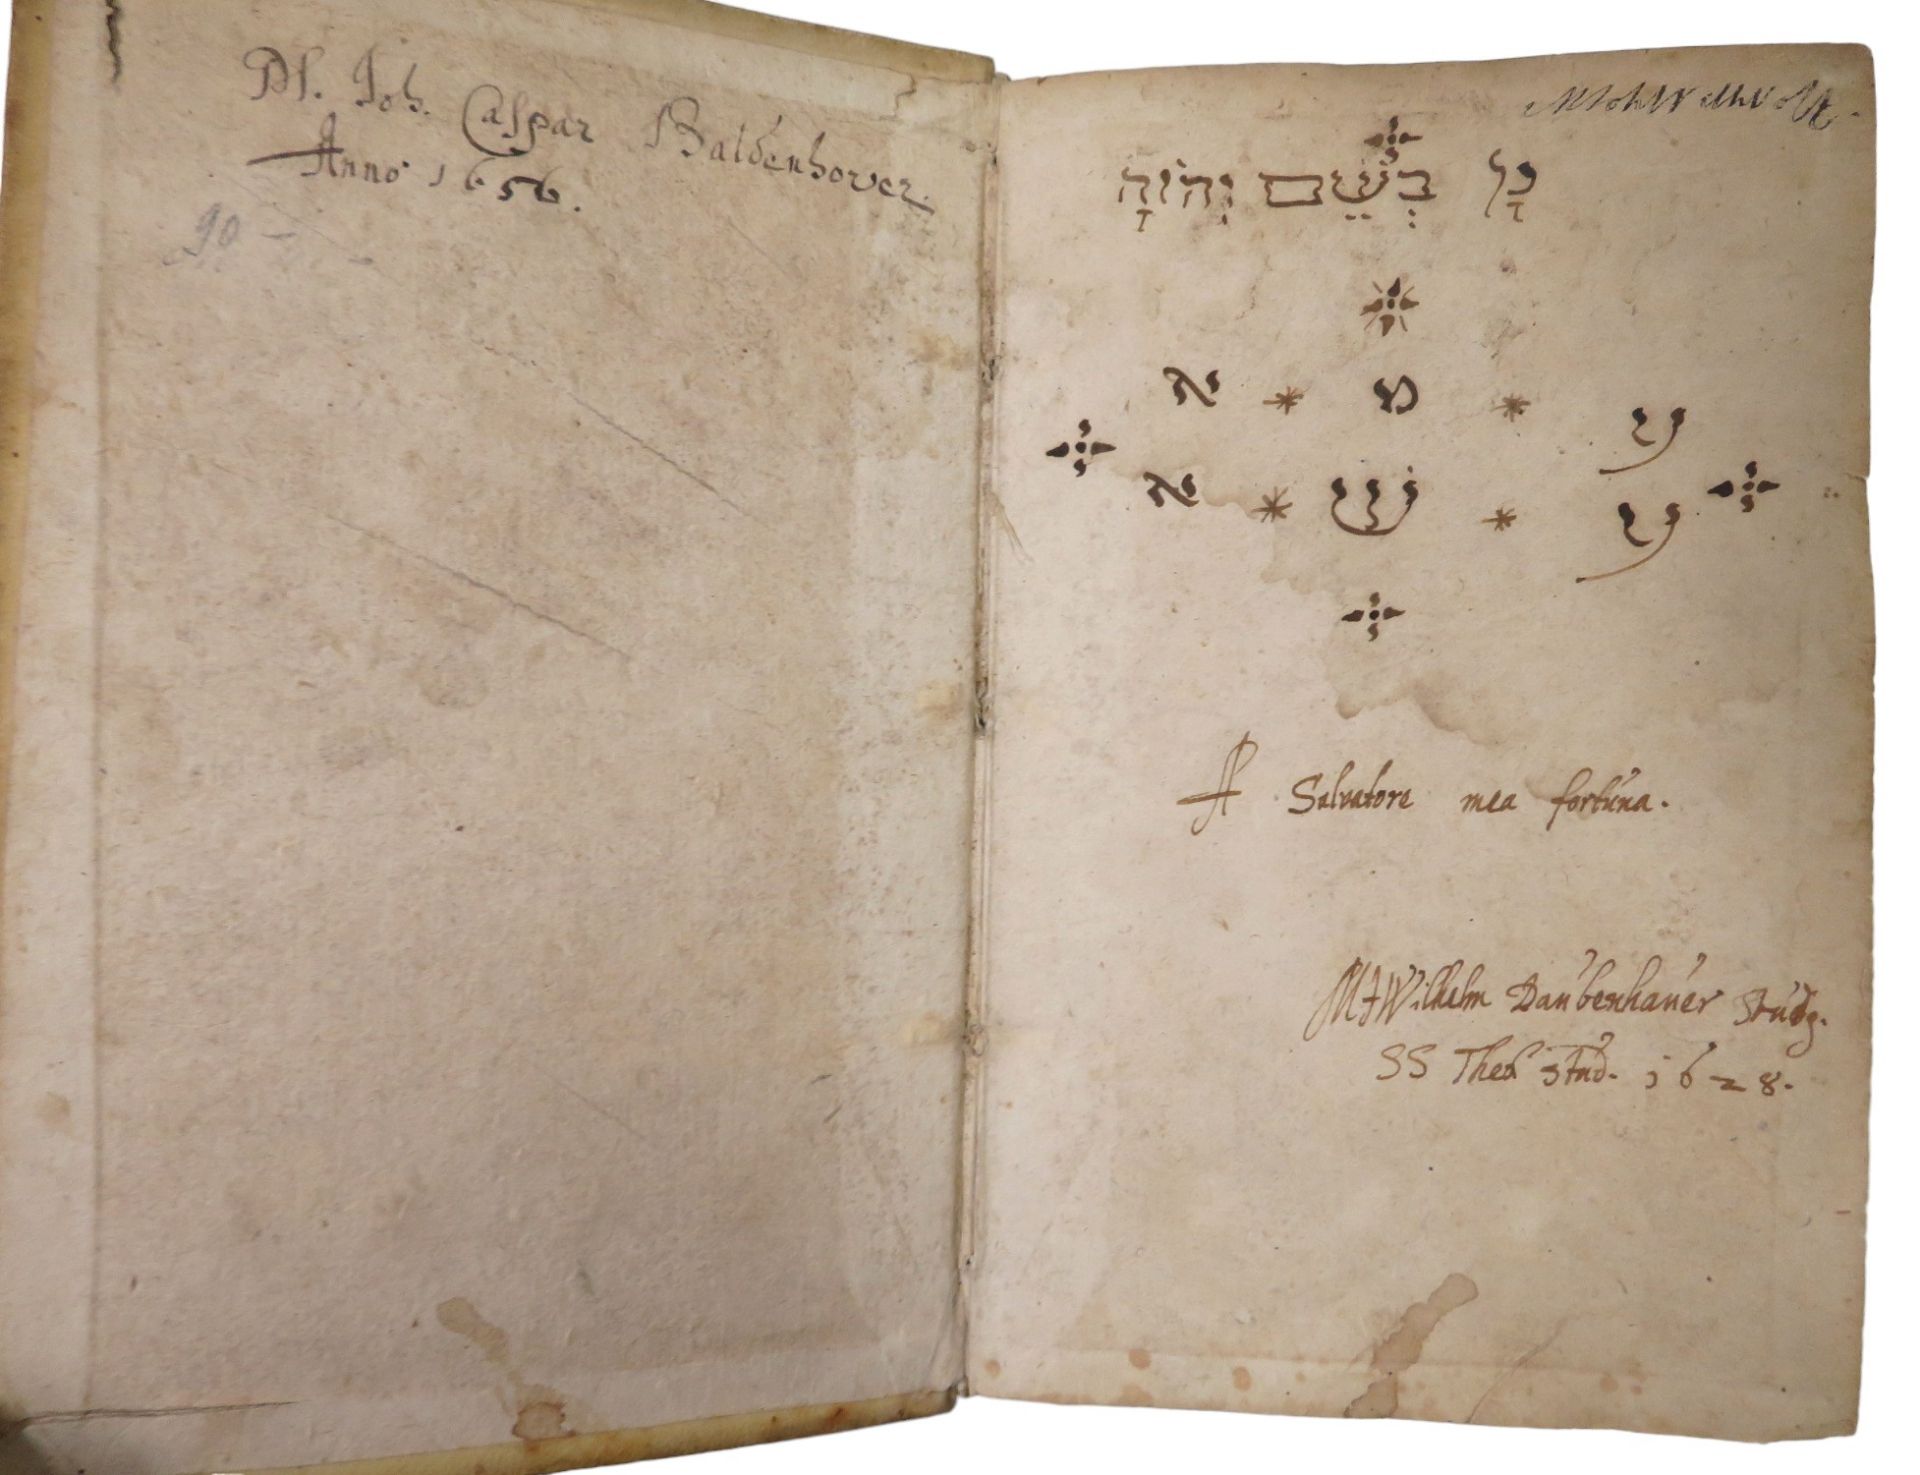 Joh. Caspar Baldenhover.
Anno 1656.
90 -
כָל בְּשֵׁם יְהוָֹה
א * מ * ע
א * שׁ * ע
A Salvatore mea fortuna.
MJWilhelm Daubenhauer
SS Theol Stud. 1628.